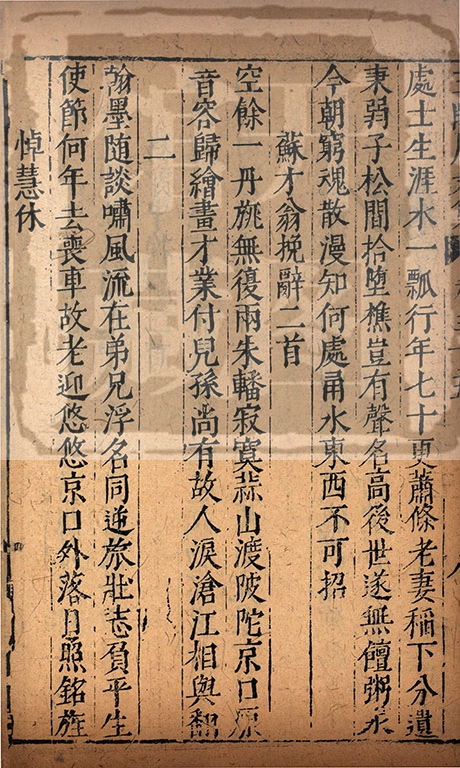 處士生涯水一瓢行年七十更蕭條老妻稲下分遺
秉弱子松間拾堕樵豈有聲名高後世遂無饘粥永
今朝窮魂散漫知何處甫水東西不可招
蘇才翁挽辭二首
空餘一丹旐無復兩朱轓寂寞蒜山渡陂陀京口原
音容歸繪畫才業付兒孫尚有故人淚滄江相與翻
二
翰墨随談嘯風流在弟兄浮名同逆旅壯志負平生
使節何年去喪車故老迎悠悠京口外落日照銘旌
悼慧休